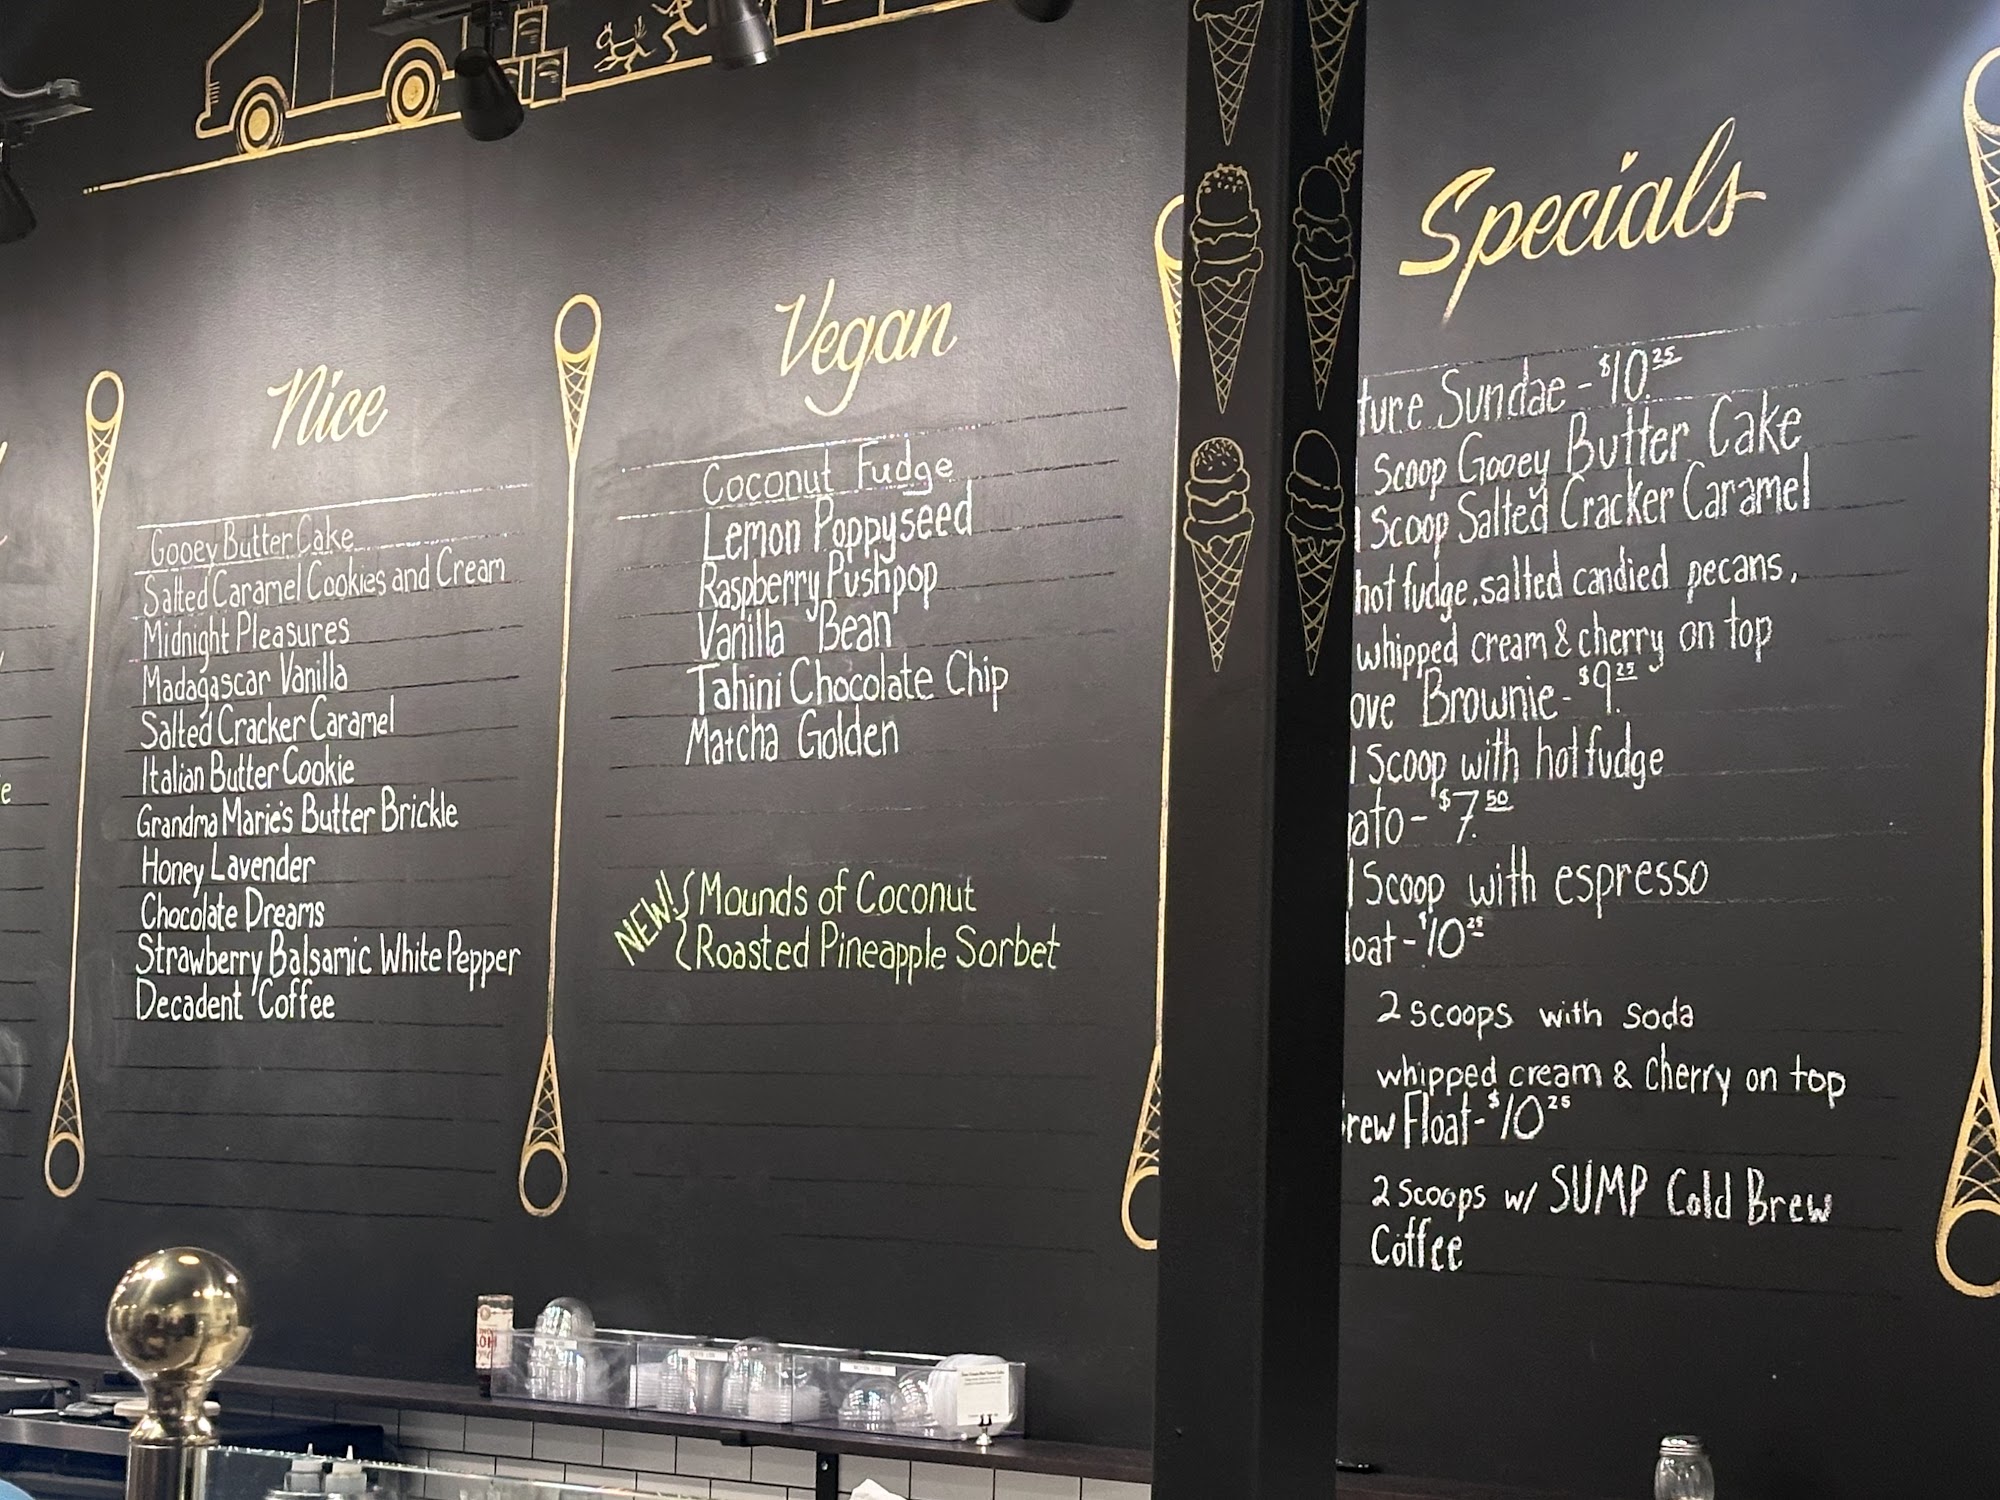 Nice
Gooey Butter Cake
Salted Caramel Cookies and Cream
Midnight Pleasures
Madagascar Vanilla
Salted Cracker Caramel
Italian Butter Cookie
Grandma Marie's Butter Brickle
Honey Lavender
Chocolate Dreams
Strawberry Balsamic White Pepper
Decadent Coffee
Vegan
Coconut Fudge
Lemon Poppyseed
Raspberry Pushpop
Vanilla Bean
Tahini Chocolate Chip
Matcha Golden
NEW!
Mounds of Coconut
Roasted Pineapple Sorbet
Specials
ture Sundae - $10.25
1 Scoop Gooey Butter Cake
1 Scoop Salted Cracker Caramel
hot fudge, salted candied pecans,
whipped cream & cherry on top
ove Brownie - $9.25
1 Scoop with hot fudge
ato - $7.50
1 Scoop with espresso
loat - $10.25
2 scoops with soda
whipped cream & Cherry on top
rew Float - $10.25
2 Scoops w/ SUMP Cold Brew
Coffee